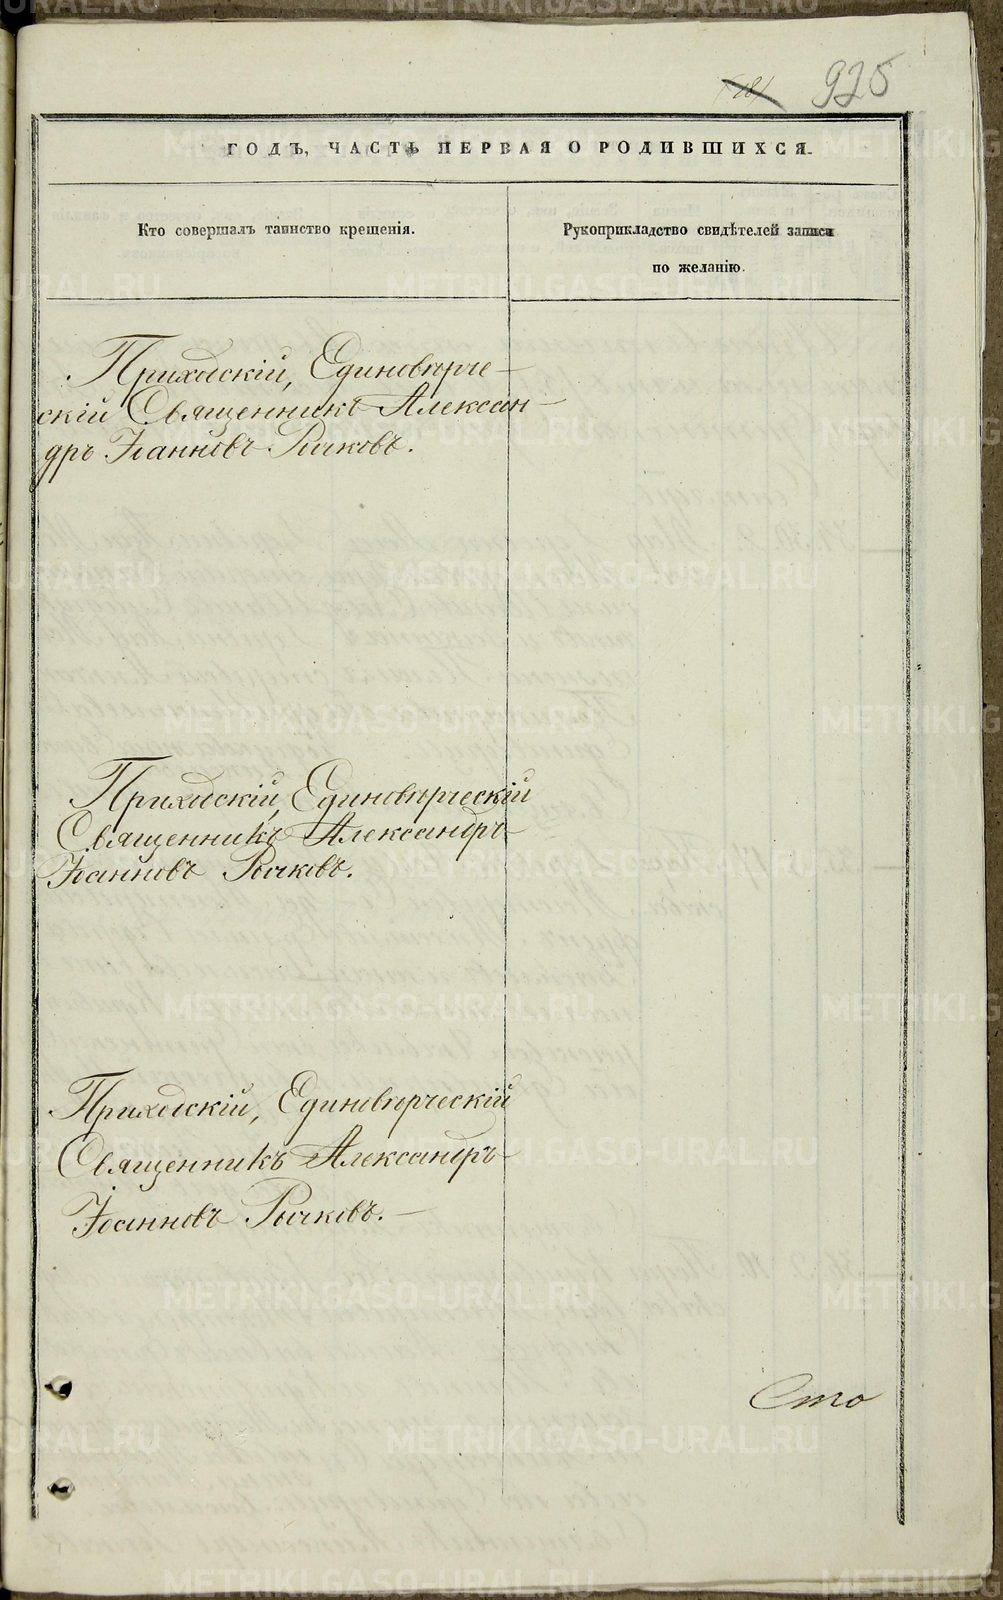 925
ГОДЪ, ЧАСТЬ ПЕРВАЯ О РОДИВШИХСЯ.
Кто совершалъ таинство крещенія.
Рукоприкладство свидѣтелей записи
по желанію.
Приходскій, Единовѣрче-
скій Священникъ Алексан-
дръ Іоанновъ Рычковъ.
Приходскій, Единовѣрческій
Священникъ Александръ
Іоанновъ Рычковъ.
Приходскій, Единовѣрческій
Священникъ Александръ
Іоанновъ Рычковъ.
Сто
METRIKI.GASO-URAL.RU